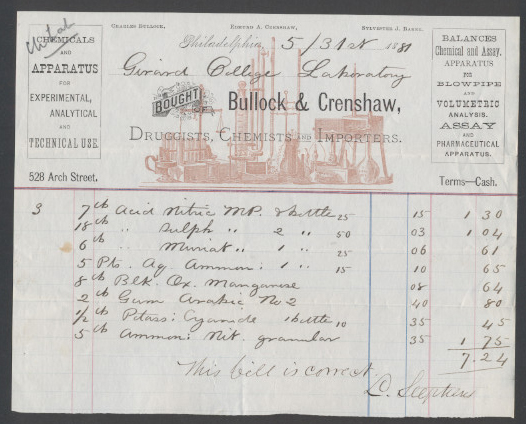 CHARLES BULLOCK. EDMUND A. CRENSHAW, SYLVESTER J. BAKER.
CHEMICALS
AND
APPARATUS
FOR
EXPERIMENTAL,
ANALYTICAL
AND
TECHNICAL USE.
528 Arch Street.
Philadelphia, 5/31st 1881
Girard College Laboratory
BOUGHT OF Bullock & Crenshaw,
DRUGGISTS, CHEMISTS AND IMPORTERS.
BALANCES
Chemical and Assay.
APPARATUS
FOR
BLOWPIPE
AND
VOLUMETRIC
ANALYSIS.
ASSAY
AND
PHARMACEUTICAL
APPARATUS.
Terms—Cash.
3 7 lb Acid Nitric MP. 2 bottle 25 15 1 30
18 lb " Sulph " 2 " 50 03 1 04
6 lb " Muriat " 1 " 25 06 61
5 Pts. Aq. Ammon: 1 " 15 10 65
8 lb Blk. Ox. Manganese 08 64
2 lb Gum Arabic No 2 40 80
1/2 lb Potass: Cyanide 1 bottle 10 35 45
5 lb Ammon: Nit. granular 35 1 75
7.24
This bill is correct